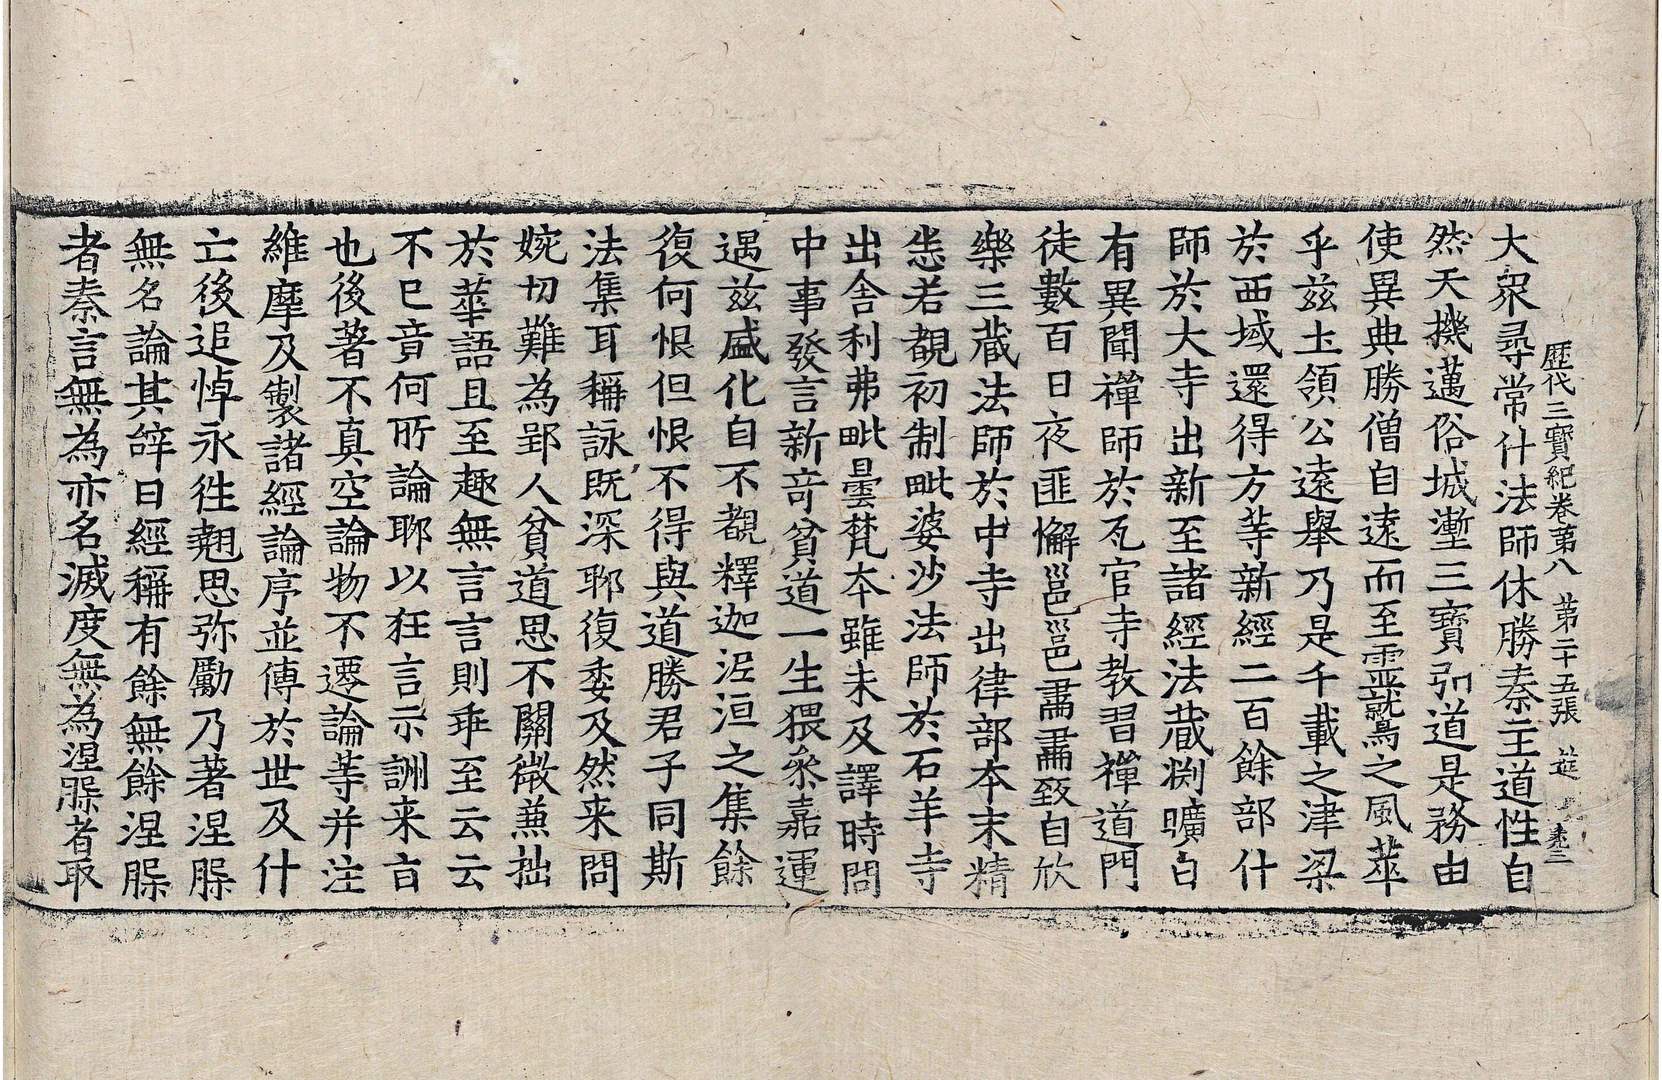 歷代三寶紀卷第八　第二十五張　筵
大衆尋常什法師休勝秦王道性自
然天機邁俗城塹三寶弘道是務由
使異典勝僧自遠而至靈鷲之風萃
乎兹土領公遠舉乃是千載之津梁
於西域還得方等新經二百餘部什
師於大寺出新至諸經法藏淵曠日
有異聞禪師於瓦官寺教習禪道門
徒數百日夜匪懈邕邕肅肅致自欣
樂三藏法師於中寺出律部本末精
悉若覩初制毗婆沙法師於石羊寺
出舍利弗毗曇梵本雖未及譯時問
中事發言新竒貧道一生猥叅嘉運
遇兹盛化自不覩釋迦泥洹之集餘
復何恨但恨不得與道勝君子同斯
法集耳稱詠既深聊復委及然来問
婉切難為郢人貧道思不關微兼拙
於華語且至趣無言言則乖至云云
不已竟何所論聊以狂言示詶来旨
也後著不真空論物不遷論等并注
維摩及製諸經論序並傳於世及什
亡後追悼永徃翹思弥勵乃著涅槃
無名論其辭曰經稱有餘無餘涅槃
者秦言無為亦名滅度無為涅槃者取